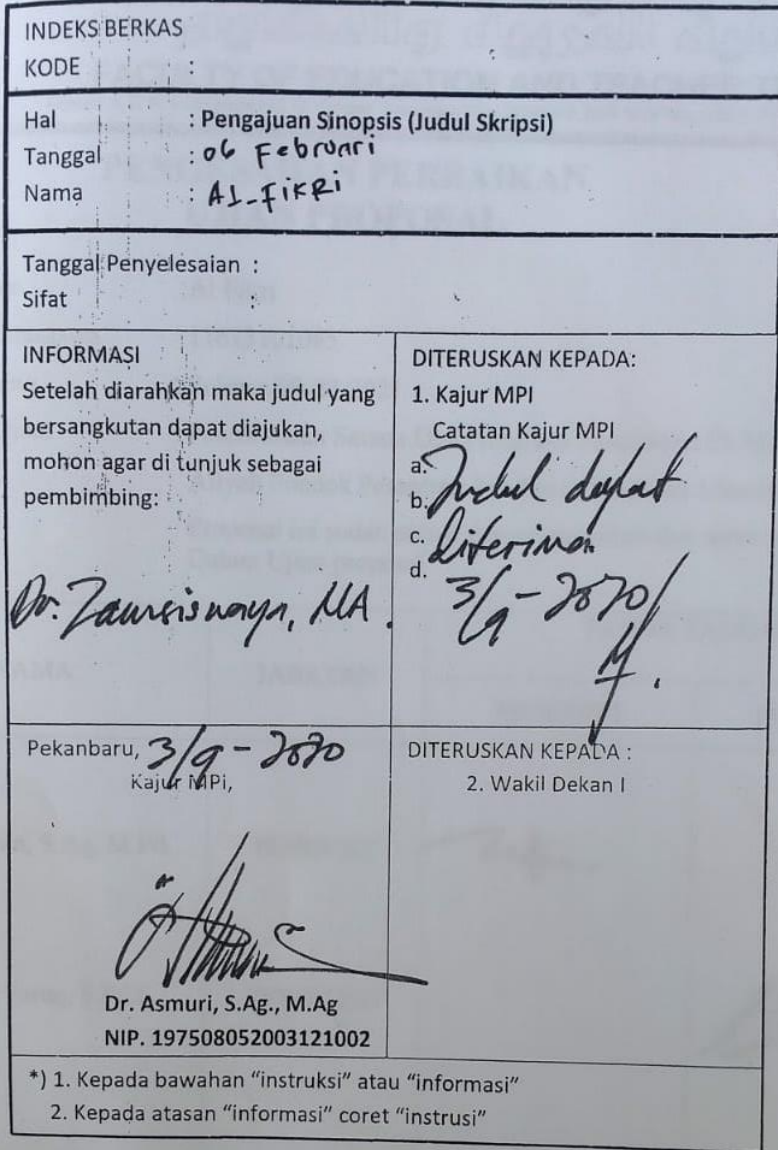 INDEKS BERKAS
KODE :
Hal : Pengajuan Sinopsis (Judul Skripsi)
Tanggal : 06 Februari
Nama : Al-Fikri
Tanggal Penyelesaian :
Sifat :
INFORMASI
Setelah diarahkan maka judul yang
bersangkutan dapat diajukan,
mohon agar di tunjuk sebagai
pembimbing:
Dr.
MA.
DITERUSKAN KEPADA:
1. Kajur MPI
Catatan Kajur MPI
a.
b. Judul dapat
c. Diterima
d.
3/9-2020
Pekanbaru, 3/9-2020
Kajur MPi,
Dr. Asmuri, S.Ag., M.Ag
NIP. 197508052003121002
DITERUSKAN KEPADA :
2. Wakil Dekan I
*) 1. Kepada bawahan “instruksi” atau “informasi”
2. Kepada atasan “informasi” coret “instrusi”